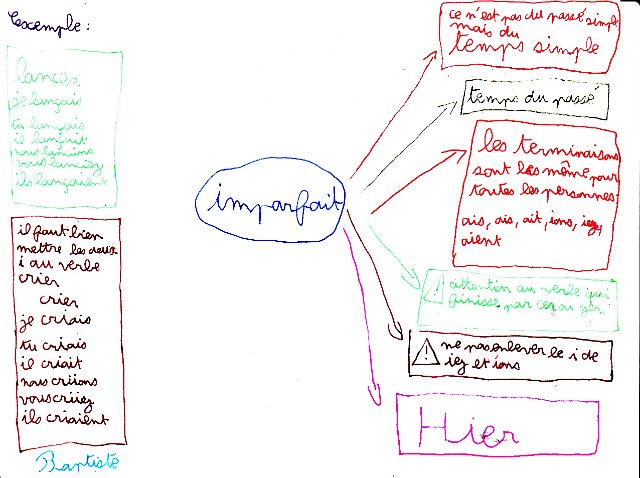 L'exemple :
lancer
je lançais
tu lançais
il lançait
nous lancions
vous lanciez
ils lançaient
il faut bien
mettre les deux
i au verbe
crier
crier
je criais
tu criais
il criait
nous criions
vous criiez
ils criaient
Baptiste
imparfait
ce n'est pas du passé simple
mais du
temps simple
temps du passé
les terminaisons
sont les même pour
toutes les personnes
ais, ais, ait, ions, iez
aient
attention au verbe qui
finisse par cer ou ger
ne pas enlever le i de
iez et ions
Hier